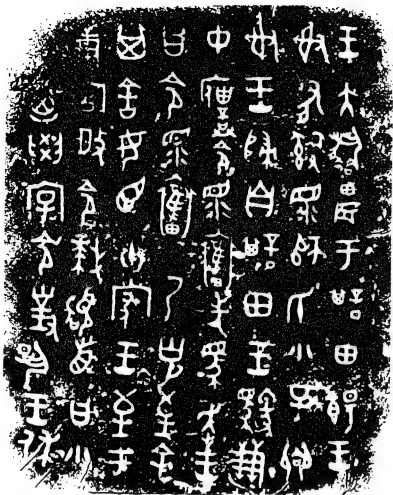 王大耤農于諆田餳王
射有𤔲眔師氏小子卿
射王歸自諆田王馭溓
中僕令眔奮先馬走王
曰令眔奮乃克至余
其舍女臣卅家王至于
溓宮𢼄令拜𩒨首曰小
子廼學令對揚王休